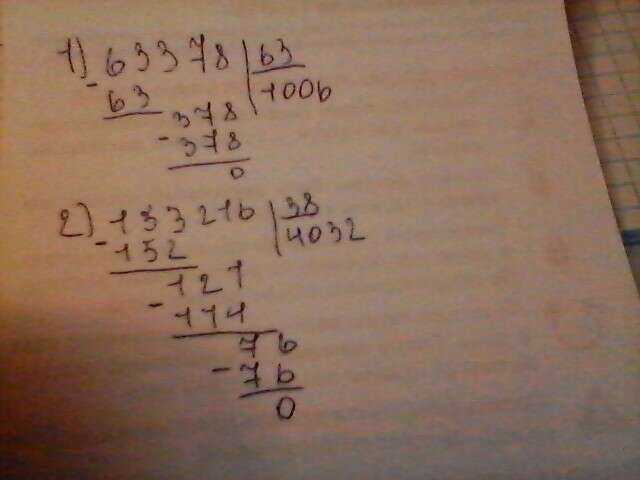 1) 63378 | 63
- 63 | 1006
378
- 378
0
2) 153216 | 38
- 152 | 4032
121
- 114
76
- 76
0